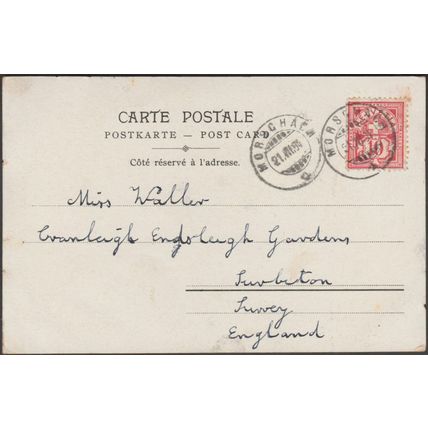 CARTE POSTALE
POSTKARTE — POST CARD
Côté réservé à l'adresse.
MORSCHACH
10
Miss Waller
Cranleigh Endsleigh Gardens
Surbiton
Surrey
England